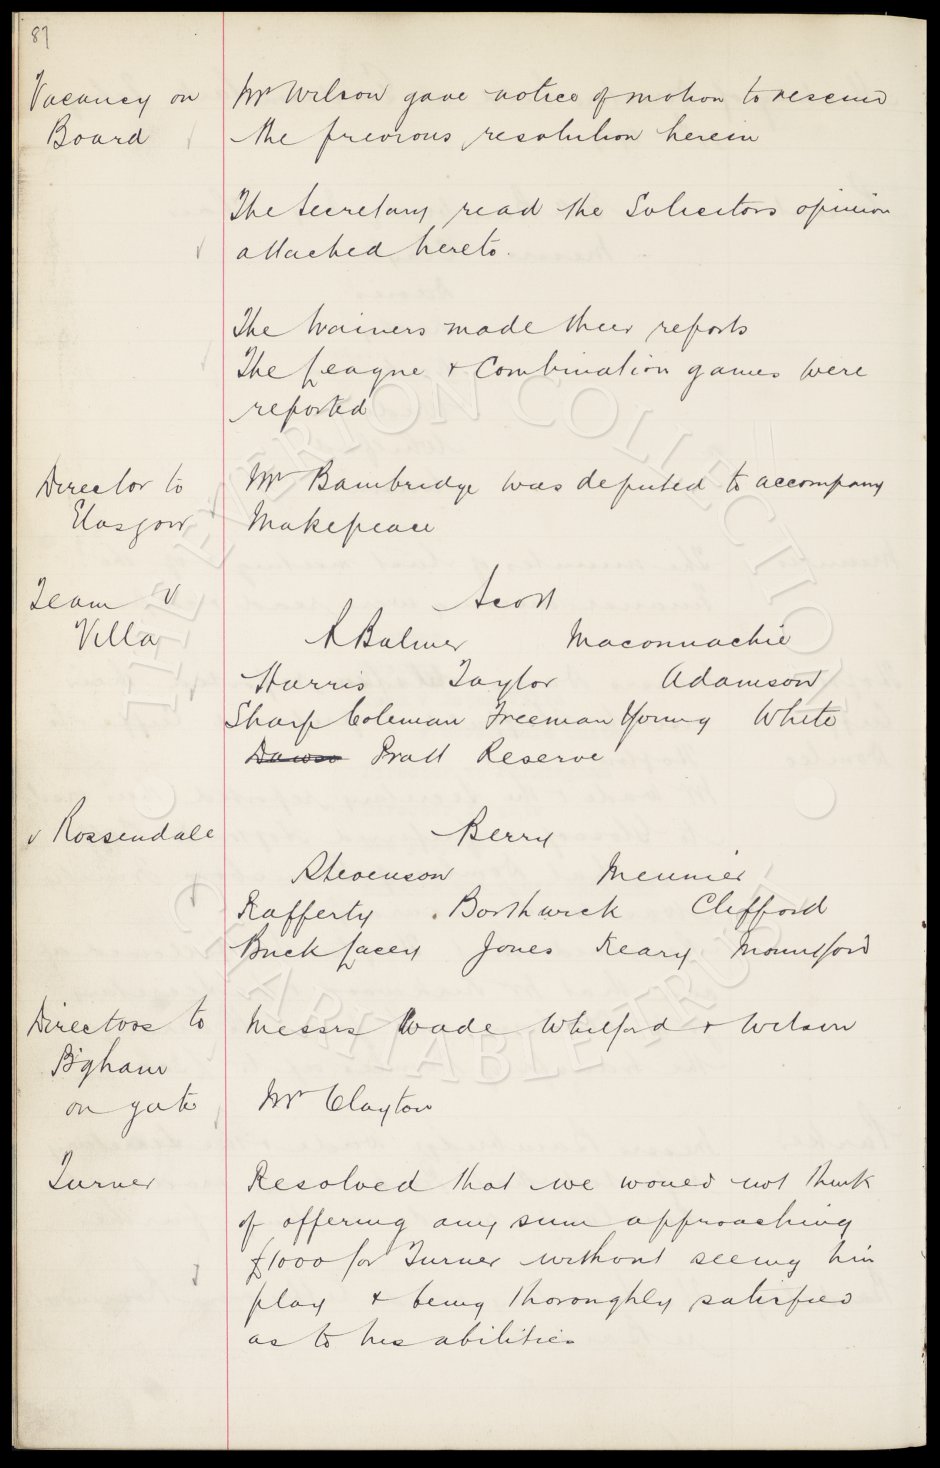 87
Vacancy on Board
Mr Wilson gave notice of motion to rescind
the previous resolution herein
The Secretary read the Solicitors opinion
attached hereto.
The trainers made their reports
The League & Combination games were
reported
Director to Glasgow
Mr Bainbridge was deputed to accompany
Makepeace
Team v Villa
Scott
R Balmer Maconnachie
Harris Taylor Adamson
Sharp Coleman Freeman Young White
Pratt Reserve
v Rossendale
Berry
Stevenson Meunier
Rafferty Borthwick Clifford
Buck Lacey Jones Keary Mountford
Directors to B'gham
Messrs Wade Whitford & Wilson
on gate
Mr Clayton
Turner
Resolved that we would not think
of offering any sum approaching
£1000 for Turner without seeing him
play & being thoroughly satisfied
as to his abilities
THE EVERTON COLLECTION
CHARITABLE TRUST